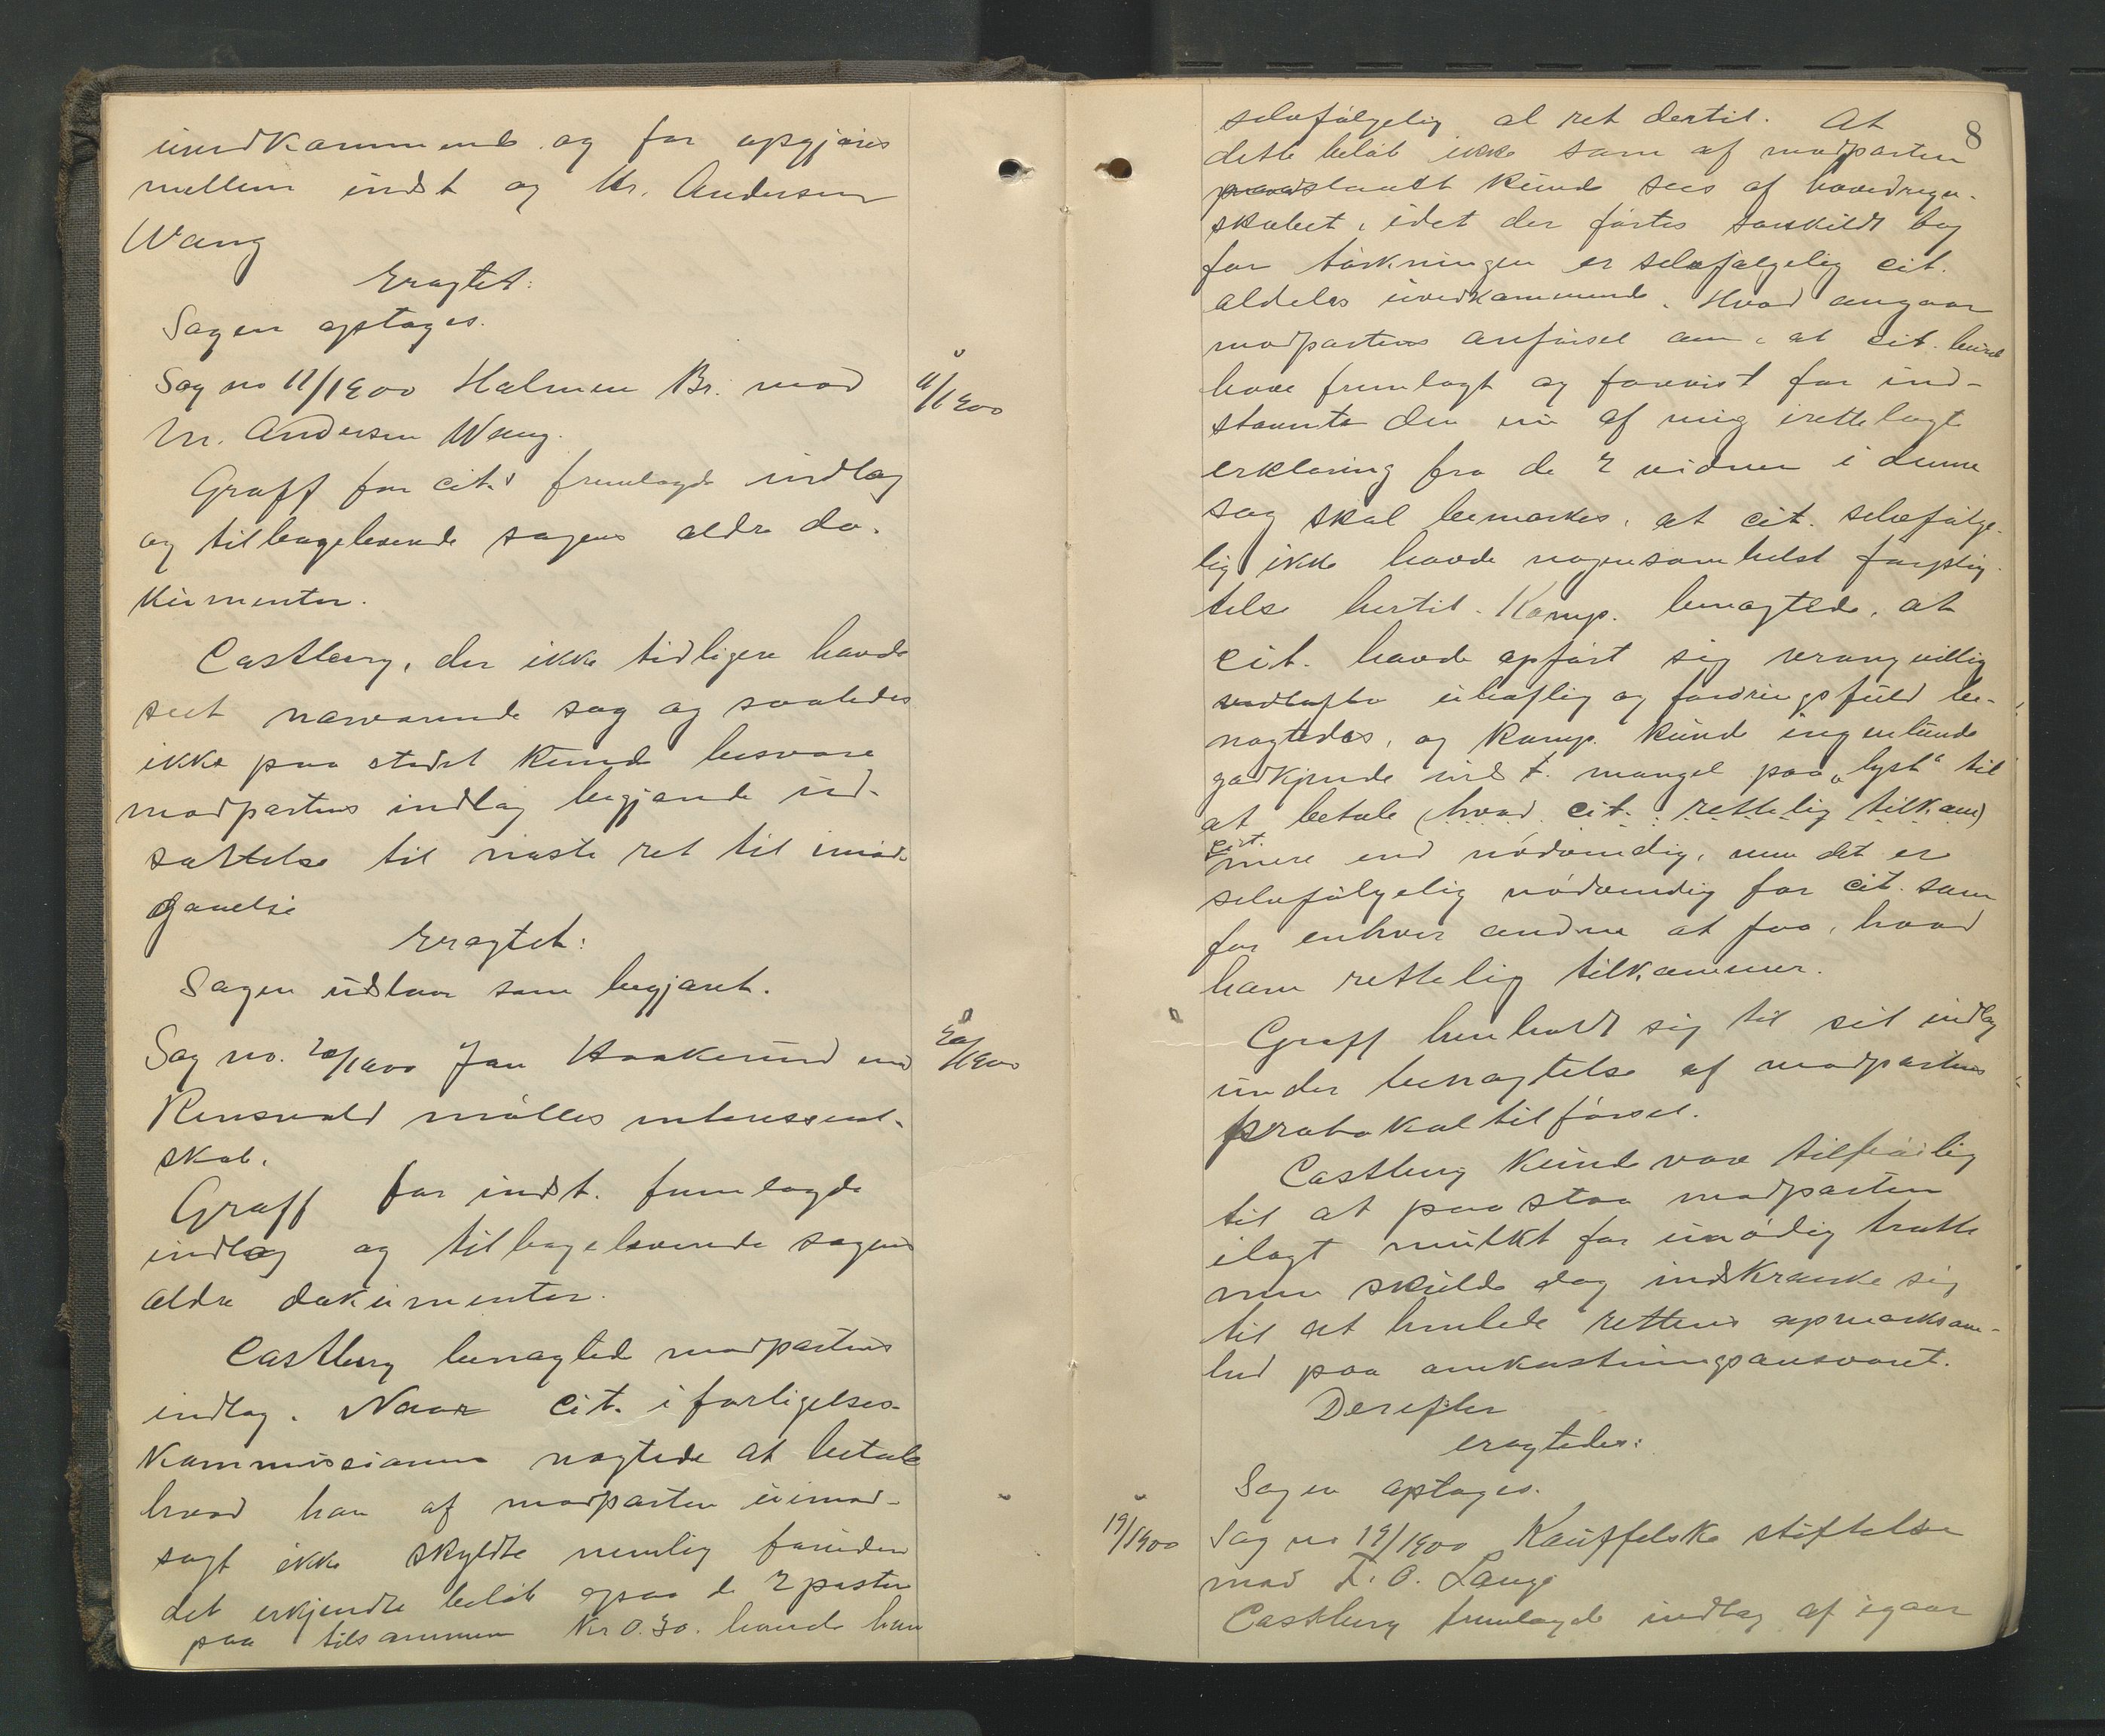 uvedkommende og for opgjøres
mellem indst og Kr. Andersen
Wang
Eragtet:
Sagen optages.
Sag no 11/1900 Halmen Br. mod
M. Andersen Wang.
11/1900
Graff for cit. fremlagde indlæg
og tilbageleverede sagens ældre do-
kumenter.
Castberg, der ikke tidligere havde
seet nærværende sag og saaledes
ikke paa stedet kunde besvare
modpartens indlæg begjærede ud-
sættelse til næste ret til imøde-
gaaelse
Eragtet:
Sagen udstaar som begjæret.
Sag no. 20/1900 Jan Haakerud mod
20/1900
Rensvold mølles interessent-
skab.
Graff for indst. fremlagde
indlæg og tilbageleverede sagens
ældre dokumenter.
Castberg benægtede modpartens
indlæg. Naar cit. i forligelses-
kommissionen nægtede at betale
hvad han af modparten uimod-
sagt ikke skyldte nemlig foruden
det erkjendte beløb ogsaa de 2 poster
paa tilsammen Kr 0.30. havde han
8
selvfølgelig al ret dertil. At
dette beløb ikke som af modparten
paastaaet kunde sees af hovedregn-
skabet, idet der førtes særskildt bog
for tørkningen er selvfølgelig cit.
aldeles uvedkommende. Hvad angaar
modpartens anførsel om, at cit. burde
have fremlagt og forevist for ind-
stævnte den nu af mig irettelagte
erklæring fra de 2 vidner i denne
sag skal bemærkes, at cit. selvfølge-
lig ikke havde nogensomhelst forplig-
telse hertil. Komp. benægtede, at
cit. havde opført sig vrangvillig
uhøflig og fordringsfuld be-
nægtedes, og komp. kunde ingenlunde
godkjende indst. mangel paa "lyst" til
at betale (hvad cit. rettelig tilkom)
cit.
mere end nødvendig, men det er
selvfølgelig nødvendig for cit. som
for enhver anden at faa, hvad
ham rettelig tilkommer.
Graff henholdt sig til sit indlæg
under benægtelse af modpartens
protokoltilførsel.
Castberg kunde være tilbøielig
til at paastaa modparten
ilagt mulkt for unødig trætte
men skulde dog indskrænke sig
til at henlede rettens opmærksom-
hed paa omkostningsansvaret.
Derefter
eragtedes:
Sagen optages.
19/1900
Sag no 19/1900 Kauffelske stiftelse
mod L. O. Lange
Castberg fremlagde indlæg af igaar